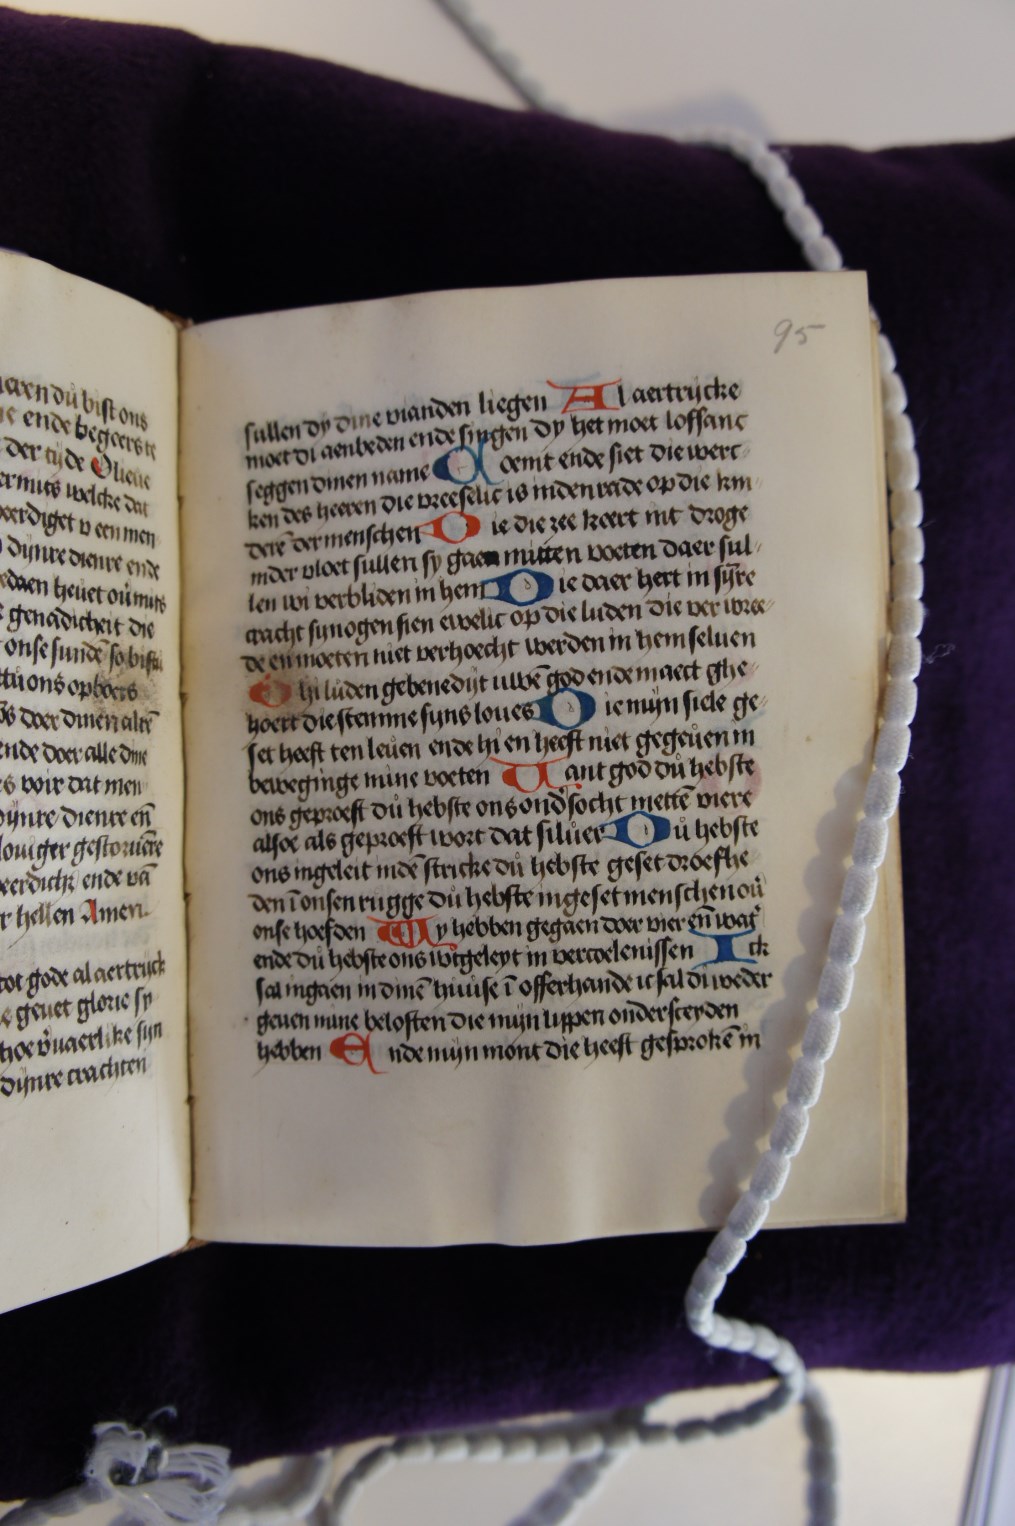 aren dů bist ons
ende begeerste
der tijde Olieue
ermits welcke dat
eerdiget v een men
dijnre dienre ende
edaen heuet oů mits
genadicheit die
onse sundē so bistu
tů ons opboers
doer dinen alrē
ende doer alle dine
s voir dat men
dijnre dienre eñ
louiger gestoruēre
eerdich ende vā
r hellen Amen
tot gode al aertryck
geuet glorie sy
hoe v̊uaerlike sijn
dijnre crachten
95
sullen dy dine vianden liegen Al aertrijcke
moet di aenbeden ende singen dy het moet loffsanc
seggen dinen name Coemt ende siet die werc
ken des heeren die vreeselic is inden rade op die kin
derē der menschen Die die zee keert int droge
inder vloet sullen sy gaen mitten voeten daer sul
len wi verbliden in hem Die daer hert in sijre
cracht synogen sien ewelic op die luden die ver wree
de en moeten niet verhoecht werden in hem seluen
Ghi luden gebenedijt uwē god ende maect ghe
hoert die stemme syns loues Die mijn siele ge
set heeft ten leuen ende hi en heeft niet gegeuen in
beweginge mine voeten Want god dů hebste
ons geproeft dů hebste ons ond̓socht mettē viere
alsoe als geproeft wort dat siluer Dů hebste
ons ingeleit indē stricke dů hebste geset droefhe
den ī onsen rugge dů hebste ingeset menschen oů
onse hoefden Wy hebben gegaen doer vier eñ wat̓
ende dů hebste ons wtgeleyt in vercoelenissen Ick
sal ingaen in dinē huuse ī offerhande ic sal di weder
geuen mine beloften die mijn lippen ondersceyden
hebben Ende mijn mont die heeft gesprokē in